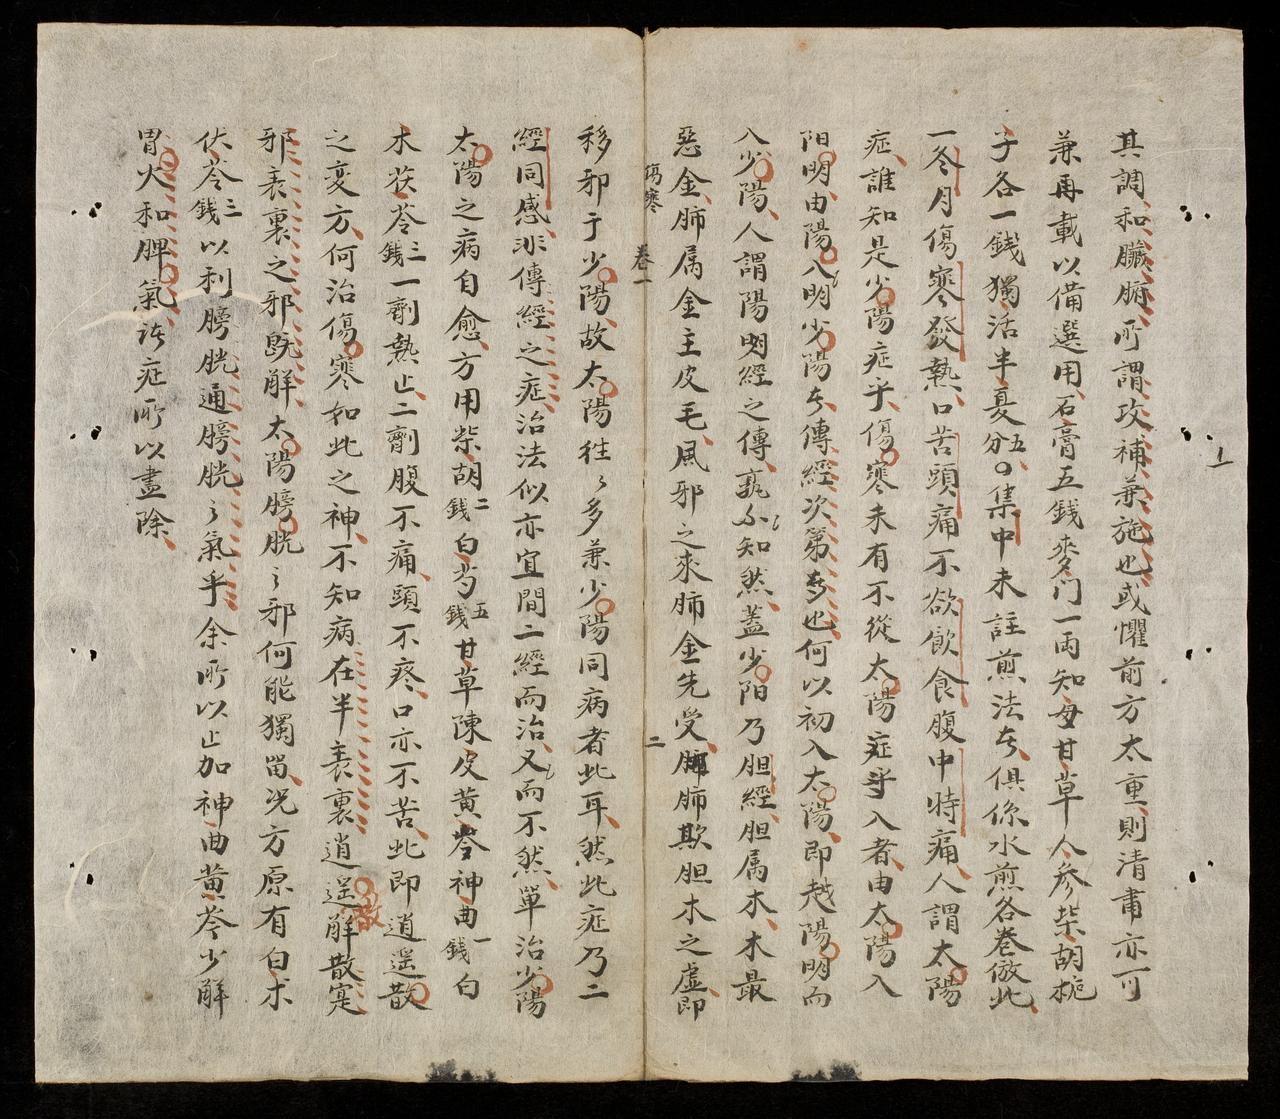 其調和臟腑所謂攻補兼施也或懼前方太重則清肅亦可
兼再載以備選用石膏五錢麥门一両知母甘草人參柴胡梔
子各一錢獨活半夏五分集中未註煎法者俱係水煎各卷倣此
一冬月傷寒發熱口苦頭痛不欲飲食腹中時痛人謂太陽
症誰知是少陽症乎傷寒未有不從太陽症乎入者由太陽入
阳明由陽入明少陽者傳經次第多也何以初入太陽即越陽明而
入少陽人謂陽明經之傳孰不知然蓋少阳乃胆經胆属木木最
惡金肺属金主皮毛風邪之來肺金先受肺肺欺胆木之虛即
傷寒 卷一 二
移邪于少陽故太陽往々多兼少陽同病者此耳然此症乃二
經同感非傳經之症治法似亦宜間二經而治又而不然單治少陽
太陽之病自愈方用柴胡二錢白芍五錢甘草陳皮黃岑神曲一錢白
木茯苓三錢一劑熱止二劑腹不痛頭不疼口亦不苦此即逍遥散
之变方何治傷寒如此之神不知病在半表裏逍遥散解散寔
邪表裏之邪既解太陽膀胱々邪何能獨留况方原有白术
伏苓三錢以利膀胱通膀胱々氣乎余所以止加神曲黃芩少解
胃火和脾氣諸症所以盡除
上